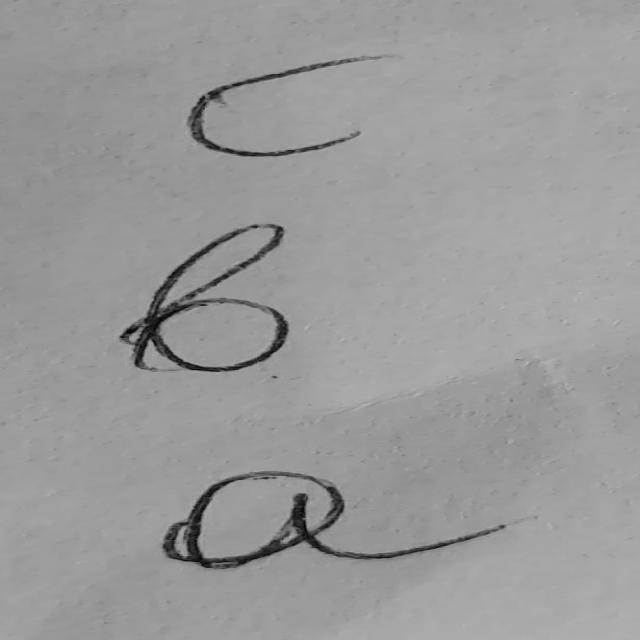 c
b
a